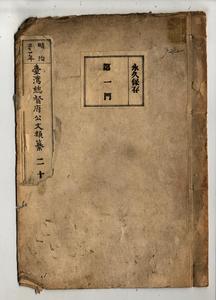 明治
三十一年
臺灣總督府公文類纂 二十
永久保存
第一門